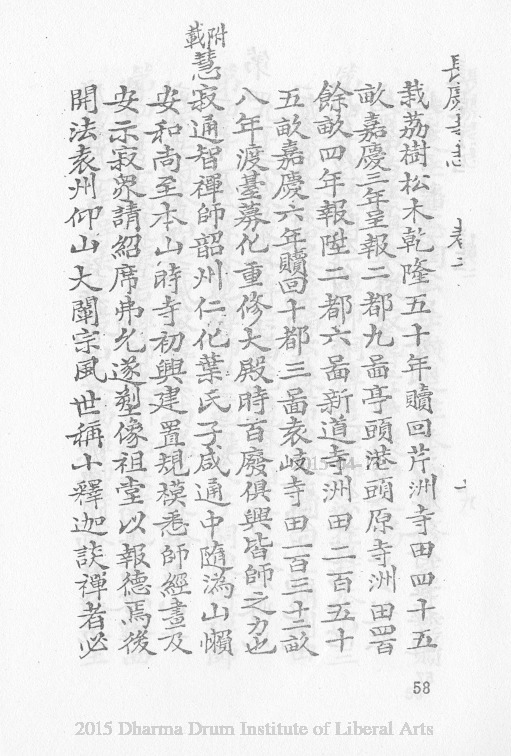 長慶寺志 卷二 十八
栽荔樹松木乾隆五十年贖回芹洲寺田四十五
畝嘉慶三年呈報二都九啚亭頭港頭原寺洲田四百
餘畝四年報陞二都六啚新道寺洲田二百五十
五畝嘉慶六年贖回十都三啚袁岐寺田一百三十二畝
八年渡臺募化重修大殿時百廢俱興皆師之力也
附載
慧寂通智禪師韶州仁化葉氏子咸通中隨溈山懶
安和尚至本山時寺初興建置規模悉師經畫及
安示寂衆請紹席弗允遂塑像祖堂以報德焉後
開法袁州仰山大闡宗風世稱小釋迦談禪者必
58
2015 Dharma Drum Institute of Liberal Arts